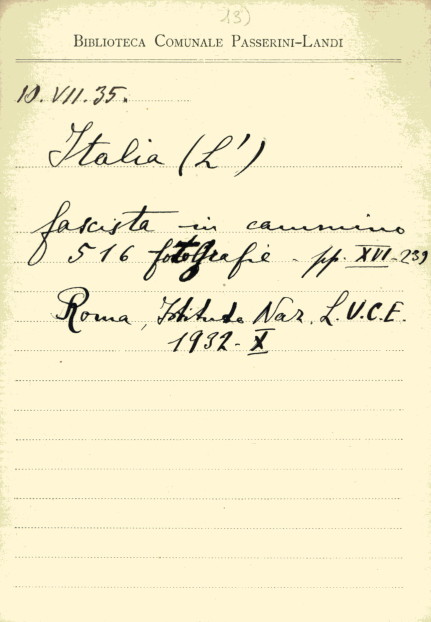 13)
BIBLIOTECA COMUNALE PASSERINI-LANDI
10.VII.35.
Italia (L')
fascista in cammino
516 fotografie - pp. XVI-239
Roma, Istituto Naz. L.U.C.E.
1932-X